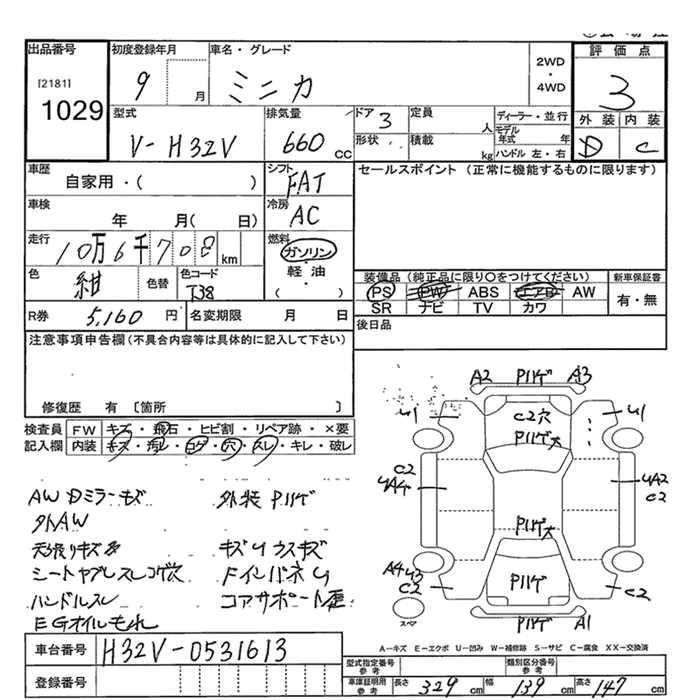 出品番号 初度登録年月 車名・グレード 評価点
[2181] 9 月 ミニカ 2WD・4WD 3
1029 外装 内装
型式 排気量 ドア 3 定員 人 ディーラー・並行
V-H32V 660 cc 形状 積載 kg モデル年式 年 D C
ハンドル 左・右
車歴 シフト セールスポイント (正常に機能するものに限ります)
自家用・( ) FAT
車検 冷房
年 月( 日) AC
走行 燃料
10万6千708 km ガソリン
色 色替 色コード 軽油 装備品 (純正品に限り○をつけてください) 新車保証書
紺 T38 ( ) PS PW ABS エアB AW 有・無
SR ナビ TV カワ
R券 5,160 円 名変期限 月 日 後日品
注意事項申告欄(不具合内容等は具体的に記入して下さい)
修復歴 有 〔箇所 〕
検査員 FW キズ・飛石・ヒビ割・リペア跡・×要
記入欄 内装 キズ・汚レ・コゲ・穴・スレ・キレ・破レ
A2 Pハゲ A3
U1 C2穴 U1
Pハゲ大
C2 UA2
UA4 C2
Pハゲ大
A4 U3 Pハゲ
C2 C2
スペア Pハゲ A1
AW Dミラーキズ 外装Pハゲ
外AW
天張リキズ キズU ウスキズ
シートヤブレスレコゲ穴 FインパネU
ハンドルスレ コアサポート歪
EGオイルもれ
A-キズ E-エクボ U-凹み W-補修跡 S-サビ C-腐食 XX-交換済
車台番号 H32V-0531613
型式指定番号 参考 類別区分番号 参考
登録番号 車庫証明用 参考 長さ 329 cm 幅 139 cm 高さ 147 cm